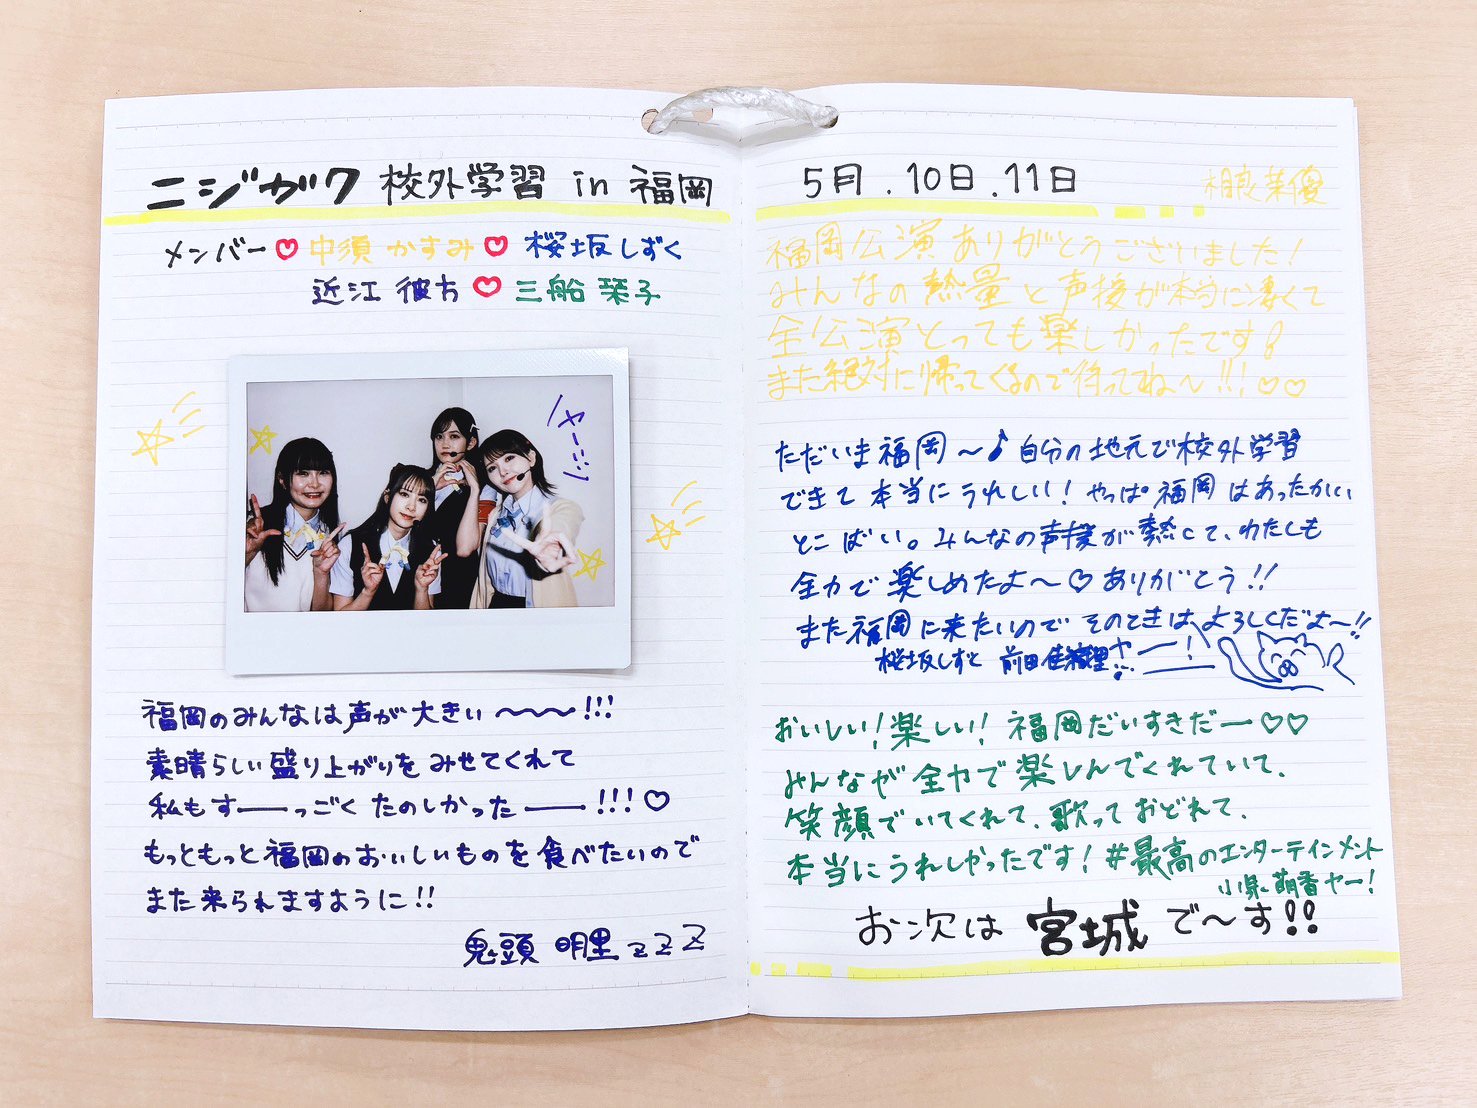 ニジガク 校外学習 in 福岡
メンバー♡中須 かすみ♡桜坂しずく
近江 彼方♡三船 栞子
ヤーーン
福岡のみんなは声が大きい〜〜〜!!!
素晴らしい盛り上がりをみせてくれて
私もすーーっごくたのしかったーー!!!♡
もっともっと福岡のおいしいものを食べたいので
また来られますように!!
鬼頭 明里 zzz
5月.10日.11日
相良茉優
福岡公演ありがとうございました!
みんなの熱量と声援が本当に凄くて
全公演とっても楽しかったです!
また絶対に帰ってくるので待っててね〜!!!♡♡
ただいま福岡〜♪自分の地元で校外学習
できて本当にうれしい!やっぱ福岡はあったかい
とこばい。みんなの声援が熱くて、わたしも
全力で楽しめたよ〜♡ありがとう!!
また福岡に来たいのでそのときはよろしくだよ〜!!
桜坂しずく 前田佳織里
おいしい!楽しい!福岡だいすきだー♡♡
みんなが全力で楽しんでくれていて、
笑顔でいてくれて、歌っておどれて、
本当にうれしかったです!#最高のエンターテインメント
小泉萌香ヤー!
お次は宮城で〜す!!